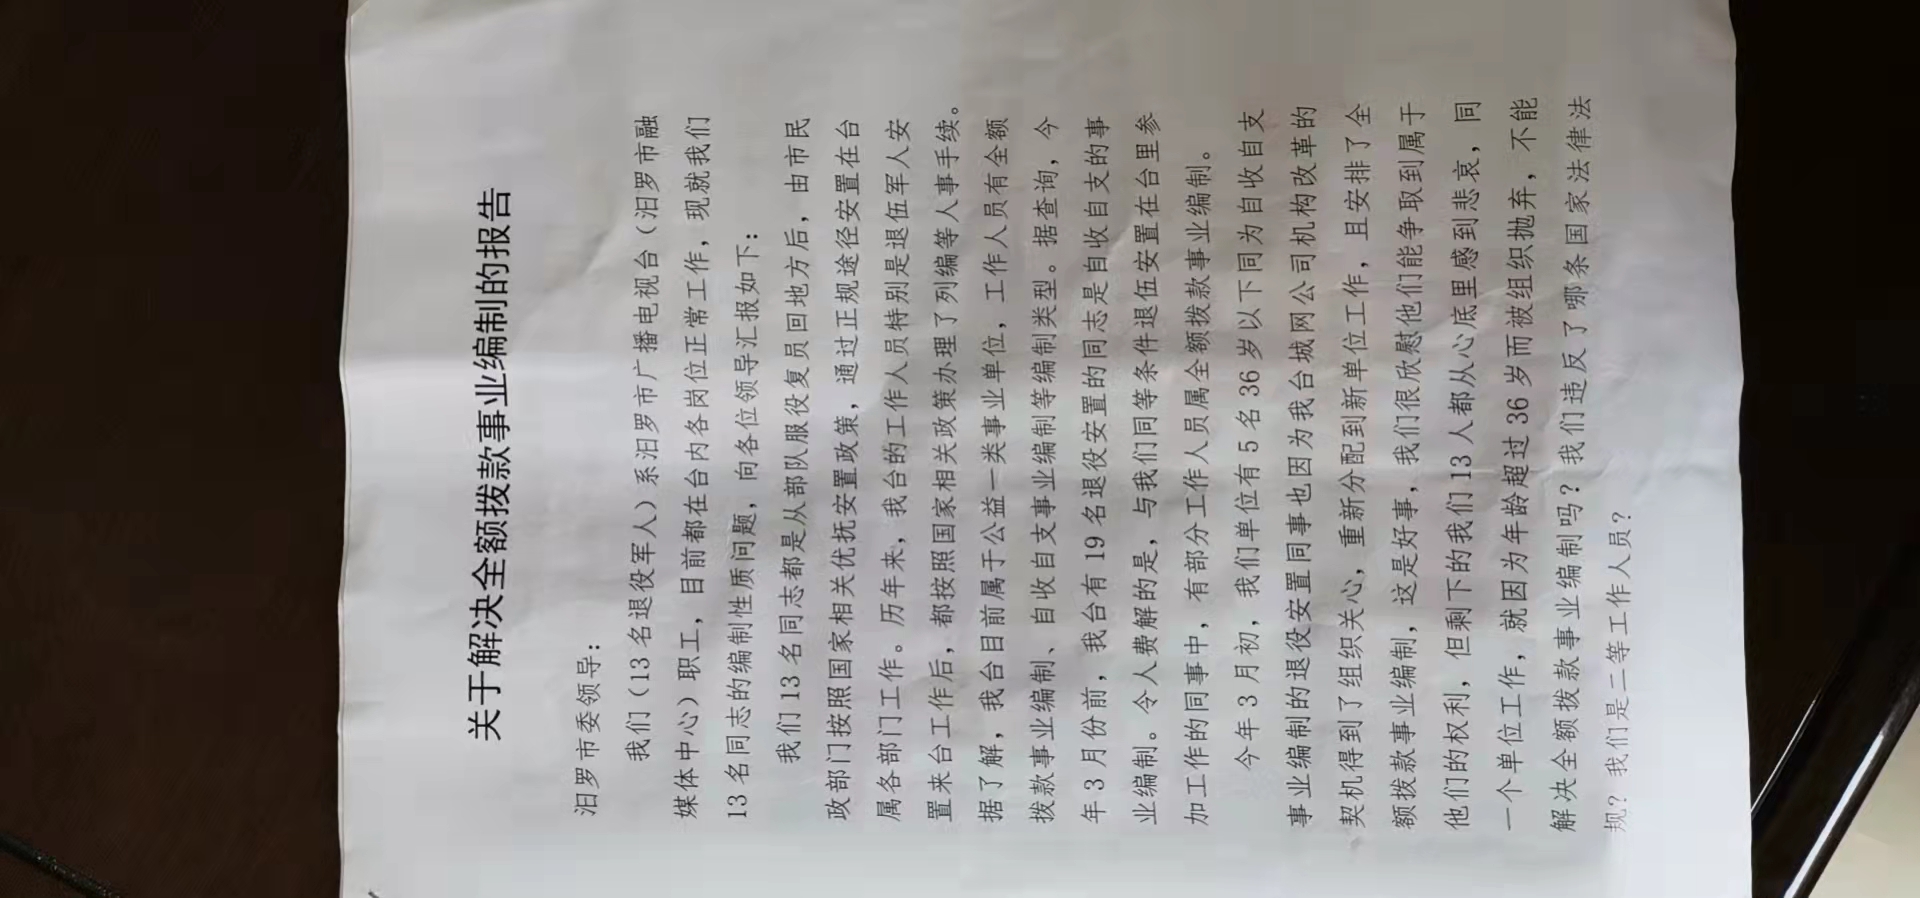 关于解决全额拨款事业编制的报告
汨罗市委领导：
我们（13名退役军人）系汨罗市广播电视台（汨罗市融
媒体中心）职工，目前都在台内各岗位正常工作，现就我们
13名同志的编制性质问题，向各位领导汇报如下：
我们13名同志都是从部队服役复员回地方后，由市民
政部门按照国家相关优抚安置政策，通过正规途径安置在台
属各部门工作。历年来，我台的工作人员特别是退伍军人安
置来台工作后，都按照国家相关政策办理了列编等人事手续。
据了解，我台目前属于公益一类事业单位，工作人员有全额
拨款事业编制、自收自支事业编制等编制类型。据查询，今
年3月份前，我台有19名退役安置的同志是自收自支的事
业编制。令人费解的是，与我们同等条件退伍安置在台里参
加工作的同事中，有部分工作人员属全额拨款事业编制。
今年3月初，我们单位有5名36岁以下同为自收自支
事业编制的退役安置同事也因为我台城网公司机构改革的
契机得到了组织关心，重新分配到新单位工作，且安排了全
额拨款事业编制，这是好事，我们很欣慰他们能争取到属于
他们的权利，但剩下的我们13人都从心底里感到悲哀，同
一个单位工作，就因为年龄超过36岁而被组织抛弃，不能
解决全额拨款事业编制吗？我们违反了哪条国家法律法
规？我们是二等工作人员？